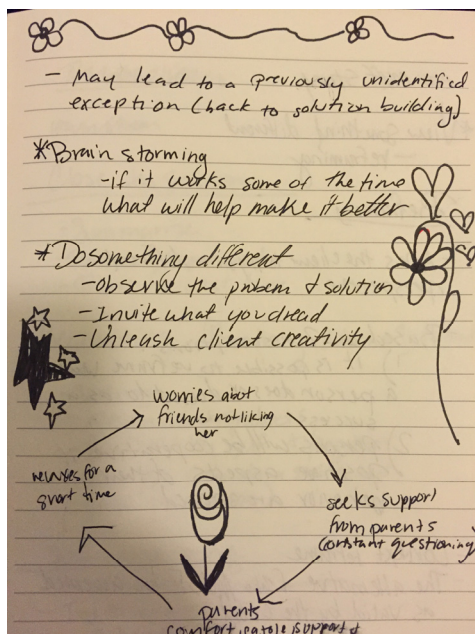 - May lead to a previously unidentified
exception (back to solution building)
*Brain storming
-if it works some of the time
what will help make it better
*Do something different
-Observe the problem & solution
-Invite what you dread
-Unleash client creativity
worries about
friends not liking
her
seeks support
from parents
(constant questioning)
relaxes for a
short time
parents
comfort support &